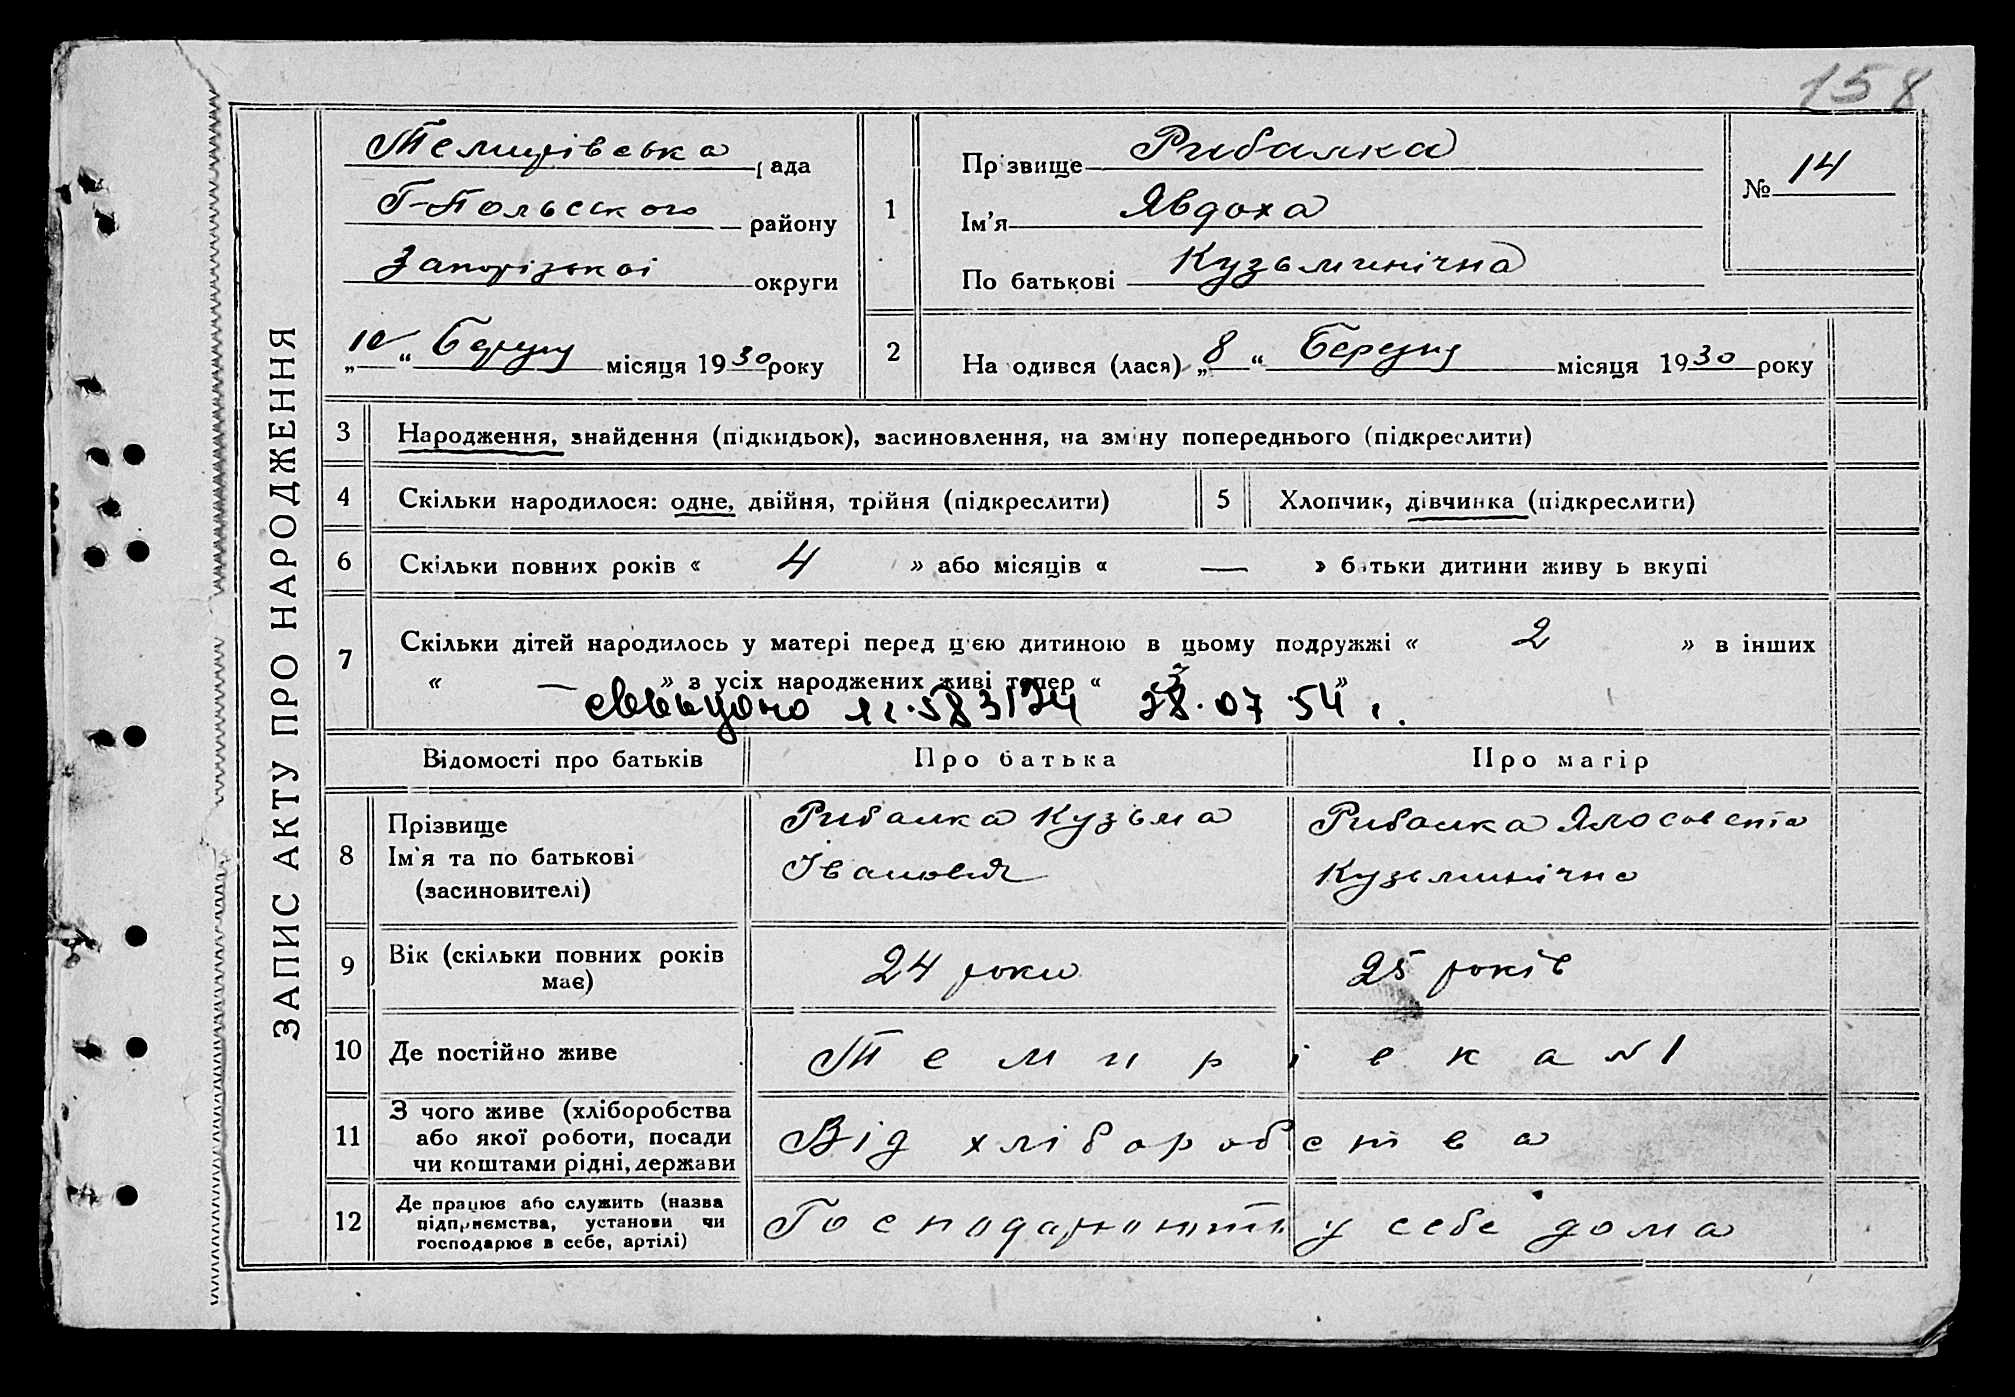 158
ЗАПИС АКТУ ПРО НАРОДЖЕННЯ
Темирівська рада
Г-Польского району
Запорізької округи
"10" Березня місяця 1930 року
1 Прізвище Рибалка
Ім'я Явдоха
По батькові Кузьминічна
№ 14
2 Народився (лася) "8" Березня місяця 1930 року
3 Народження, знайдення (підкидьок), засиновлення, на зміну попереднього (підкреслити)
4 Скільки народилося: одне, двійня, трійня (підкреслити)
5 Хлопчик, дівчинка (підкреслити)
6 Скільки повних років « 4 » або місяців « — » батьки дитини живуть вкупі
7 Скільки дітей народилось у матері перед цією дитиною в цьому подружжі « 2 » в інших
« — » з усіх народжених живі тепер « 3 »
28.07.54 г.
Відомості про батьків Про батька Про матір
8 Прізвище
Ім'я та по батькові
(засиновителі)
Рибалка Кузьма
Іванович
Рибалка Ялосовета
Кузьминічна
9 Вік (скільки повних років
має)
24 роки
25 років
10 Де постійно живе
Темирівка №1
11 З чого живе (хліборобства
або якої роботи, посади
чи коштами рідні, держави
Від хліборобства
12 Де працює або служить (назва
підприємства, установи чи
господарює в себе, артілі)
Господарюють у себе дома